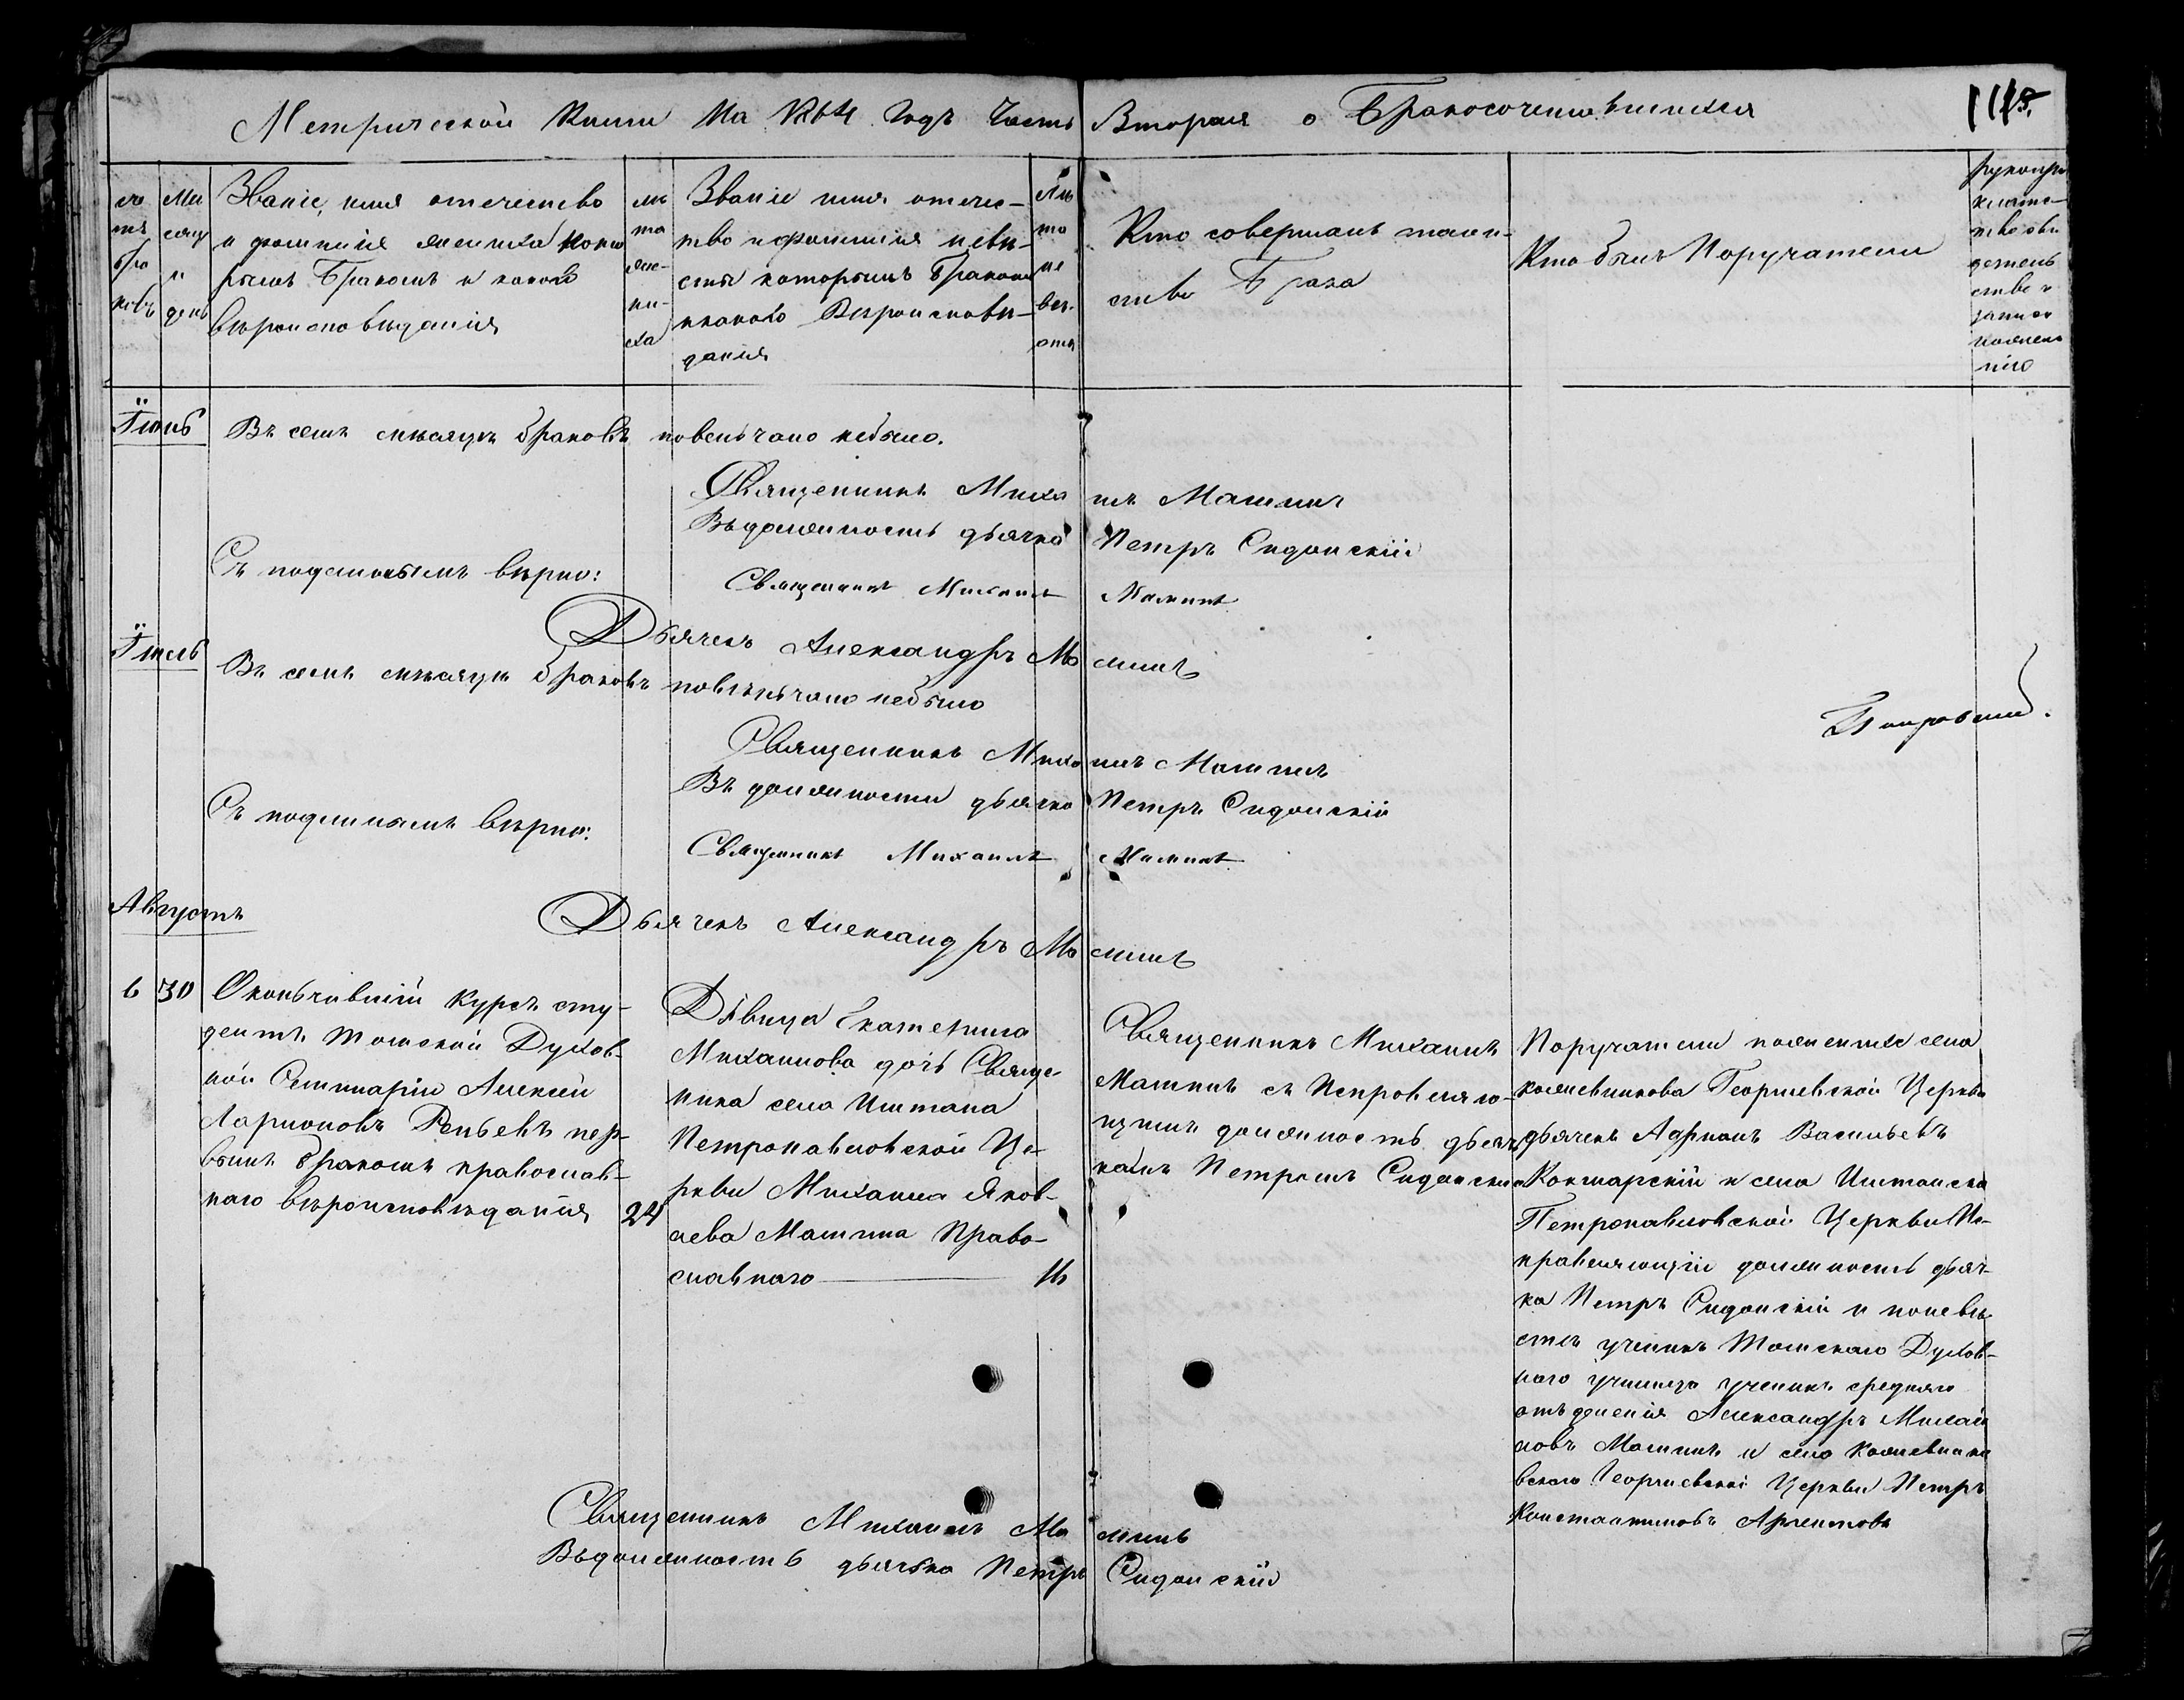 Метрической Книги На 1864 Годъ Часть Вторая о Бракосочетавшихся
115
Званіе, имя отечество
и фамилія жениха кото
рымъ Бракомъ и какого
вѣроисповѣданія
лѣ
та
же-
ни-
ха
Званіе имя отече-
тво и фамилія невѣ-
сты которымъ Бракомъ
и какого Вѣроисповѣ-
данія
Лѣ
та
не
вѣс.
ты
Кто совершалъ таин-
ство Брака
Кто былъ Поручатели
Мѣ
сяц
и
день
Іюнь
Въ семъ мѣсяцѣ браковъ повенчано небыло.
Священникъ Михаилъ Машинъ
Въ должность дьячка Петръ Сидонскій
Съ подлинымъ вѣрно:
Священникъ Михаилъ
Дьячекъ Александръ
Іюль
Въ семъ мѣсяцѣ браковъ повѣнчано небыло
Священникъ Михаилъ Машинъ
Въ должности дьячка Петръ Сидонскій
Съ подлинымъ вѣрно:
Священникъ Михаилъ
Дьячекъ Александръ
Августъ
6 30
Оконьчившій Курсъ сту-
дентъ Томской Духов-
ной Семинаріи Алексѣй
Ларионовъ Репьевъ пер-
вымъ бракомъ православ-
наго вѣроисповѣданія 24
Дѣвица Екатерина
Михаилова дочь Свяще-
ника села Иштана
Петропавловской Це-
ркви Михаила Яков-
лева Машина Право-
славнаго 16
Священникъ Михаилъ
Машинъ съ Исправляю-
щимъ должность дьяч
комъ Петромъ Сидонским
Поручатели поженихе села
кожевникова Георгиевской Церкви
дьячекъ Адрианъ Васильевъ
и села Иштанска
Петропавловской Церкви Ис-
правляющій должность дьяч-
ка Петръ Сидонскій и поневѣ
сте ученикъ Томскаго Духов-
наго училища ученикъ средняго
отъделенія Александръ Михаи
ловъ Машинъ и села Кожевнико
вскаго Георгиевской Церкви Петръ
Константиновъ
Священникъ Михаилъ
Въ должность дьячька Петръ Сидонскій